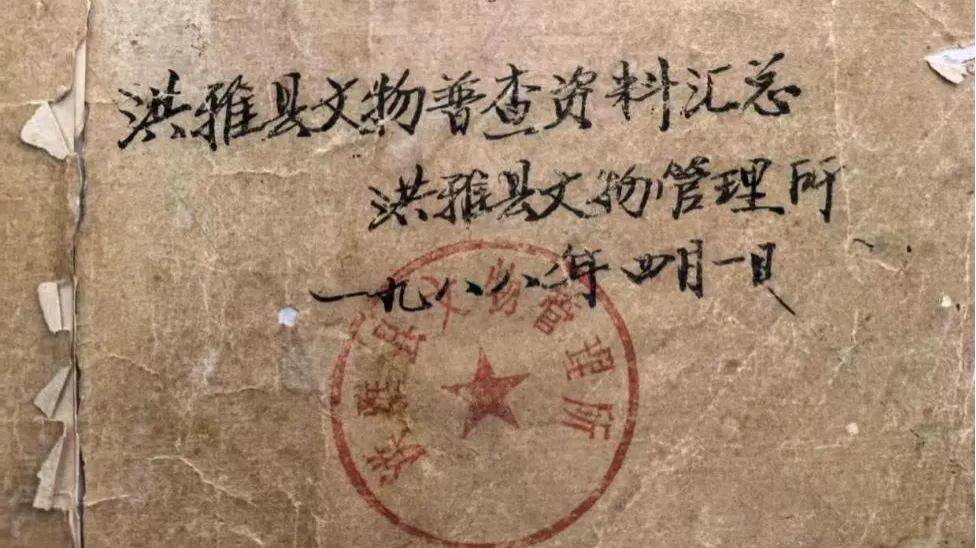 洪雅县文物普查资料汇总
洪雅县文物管理所
一九八八年四月一日
洪雅县文物管理所